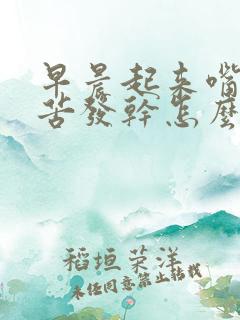 早晨起來嘴
苦發幹怎麼
稻垣榮洋
未经同意禁止转载